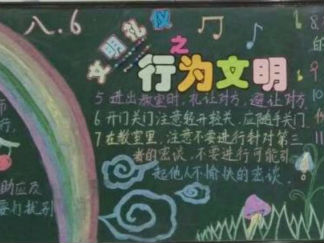 八.6
文明礼仪
之
行为文明
5 进出教室时,礼让对方,避让对方
6 开门关门注意轻开轻关,应随手关门
7 在教室里,注意不要进行针对第三
者的密谈,不要进行可能引
起他人不愉快的密谈.
行,
助应及
要打扰别
8,
的
9
10
11